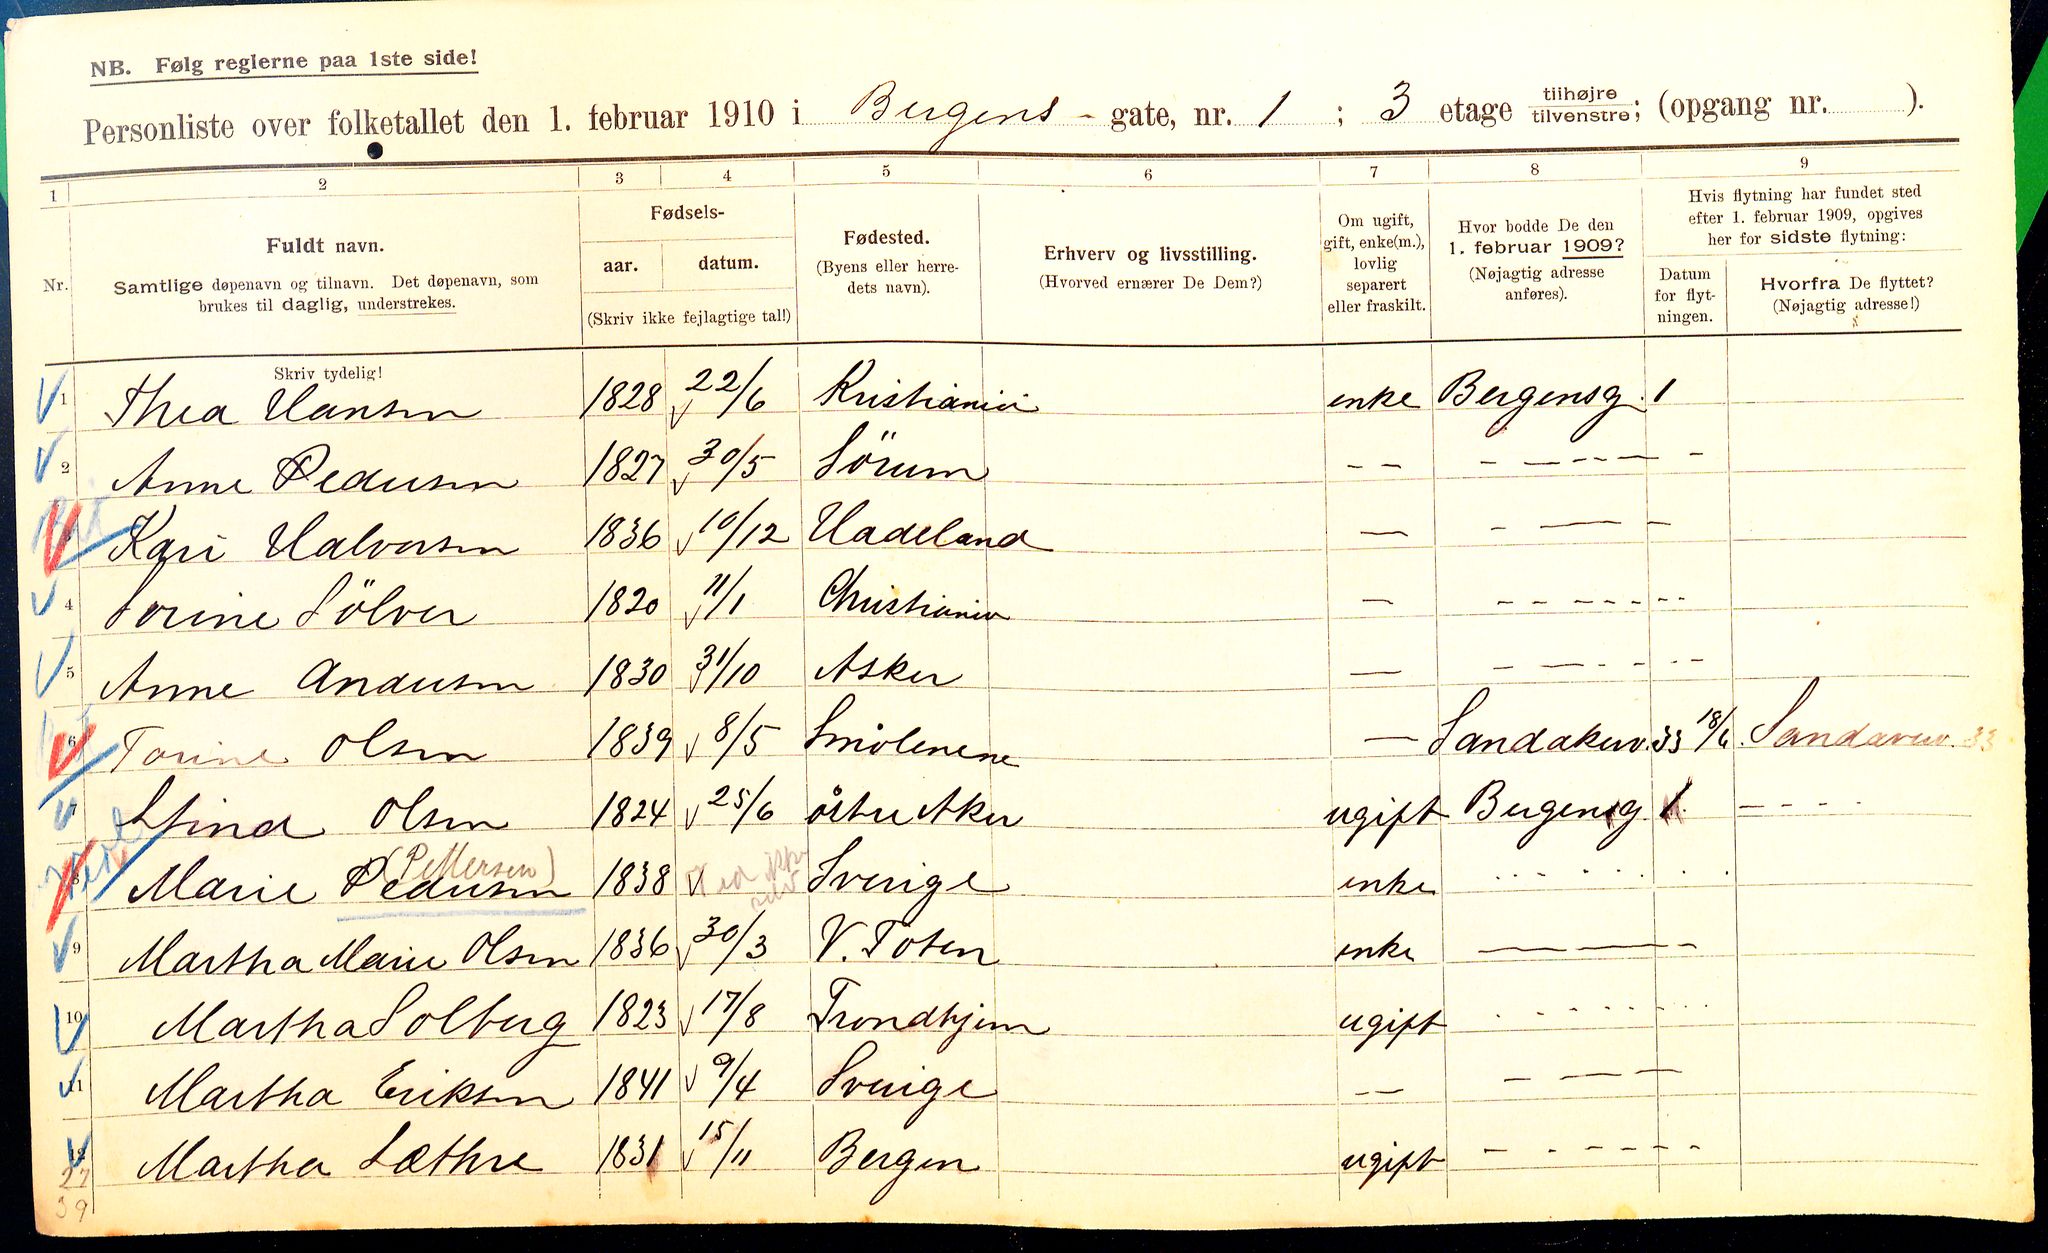 NB. Følg reglerne paa 1ste side!
Personliste over folketallet den 1. februar 1910 i Bergens - gate, nr. 1 ; 3 etage tilhøjre tilvenstre; (opgang nr. ).
1 2 3 4 5 6 7 8 9
Nr.
Fuldt navn.
Samtlige døpenavn og tilnavn. Det døpenavn, som
brukes til daglig, understrekes.
Fødsels-
aar. datum.
(Skriv ikke fejlagtige tal!)
Fødested.
(Byens eller herre-
dets navn).
Erhverv og livsstilling.
(Hvorved ernærer De Dem?)
Om ugift,
gift, enke(m.),
lovlig
separert
eller fraskilt.
Hvor bodde De den
1. februar 1909?
(Nøjagtig adresse
anføres).
Hvis flytning har fundet sted
efter 1. februar 1909, opgives
her for sidste flytning:
Datum
for flyt-
ningen.
Hvorfra De flyttet?
(Nøjagtig adresse!)
Skriv tydelig!
1 Thea Hansen 1828 22/6 Kristiania enke Bergensg. 1
2 Anne Pedersen 1827 30/5 Sörum - - - - - - - -
3 Kari Halvorsen 1836 10/12 Hadeland — - — - —
4 Sorine Sölver 1820 11/1 Christiania — - - - - - - -
5 Anne Andersen 1830 31/10 Asker — - — - - - - -
6 Torine Olsen 1839 8/5 Smölenene — Sandakerv. 33 18/6. Sandaverv. 33
7 Stina Olsen 1824 25/6 östre Aker ugift Bergensg. 1 — - - - -
8 Marie Pedersen (Pettersen) 1838 Ved ikke selv Sverige enke . . . . . . . .
9 Martha Marie Olsen 1836 30/3 V. Toten enke — — — — -
10 Martha Solberg 1823 17/8 Trondhjem ugift . . . . . . . .
11 Martha Eriksen 1841 9/4 Sverige — - — — —
12 Martha Sæthre 1831 15/11 Bergen ugift - . - . - - -
27
39